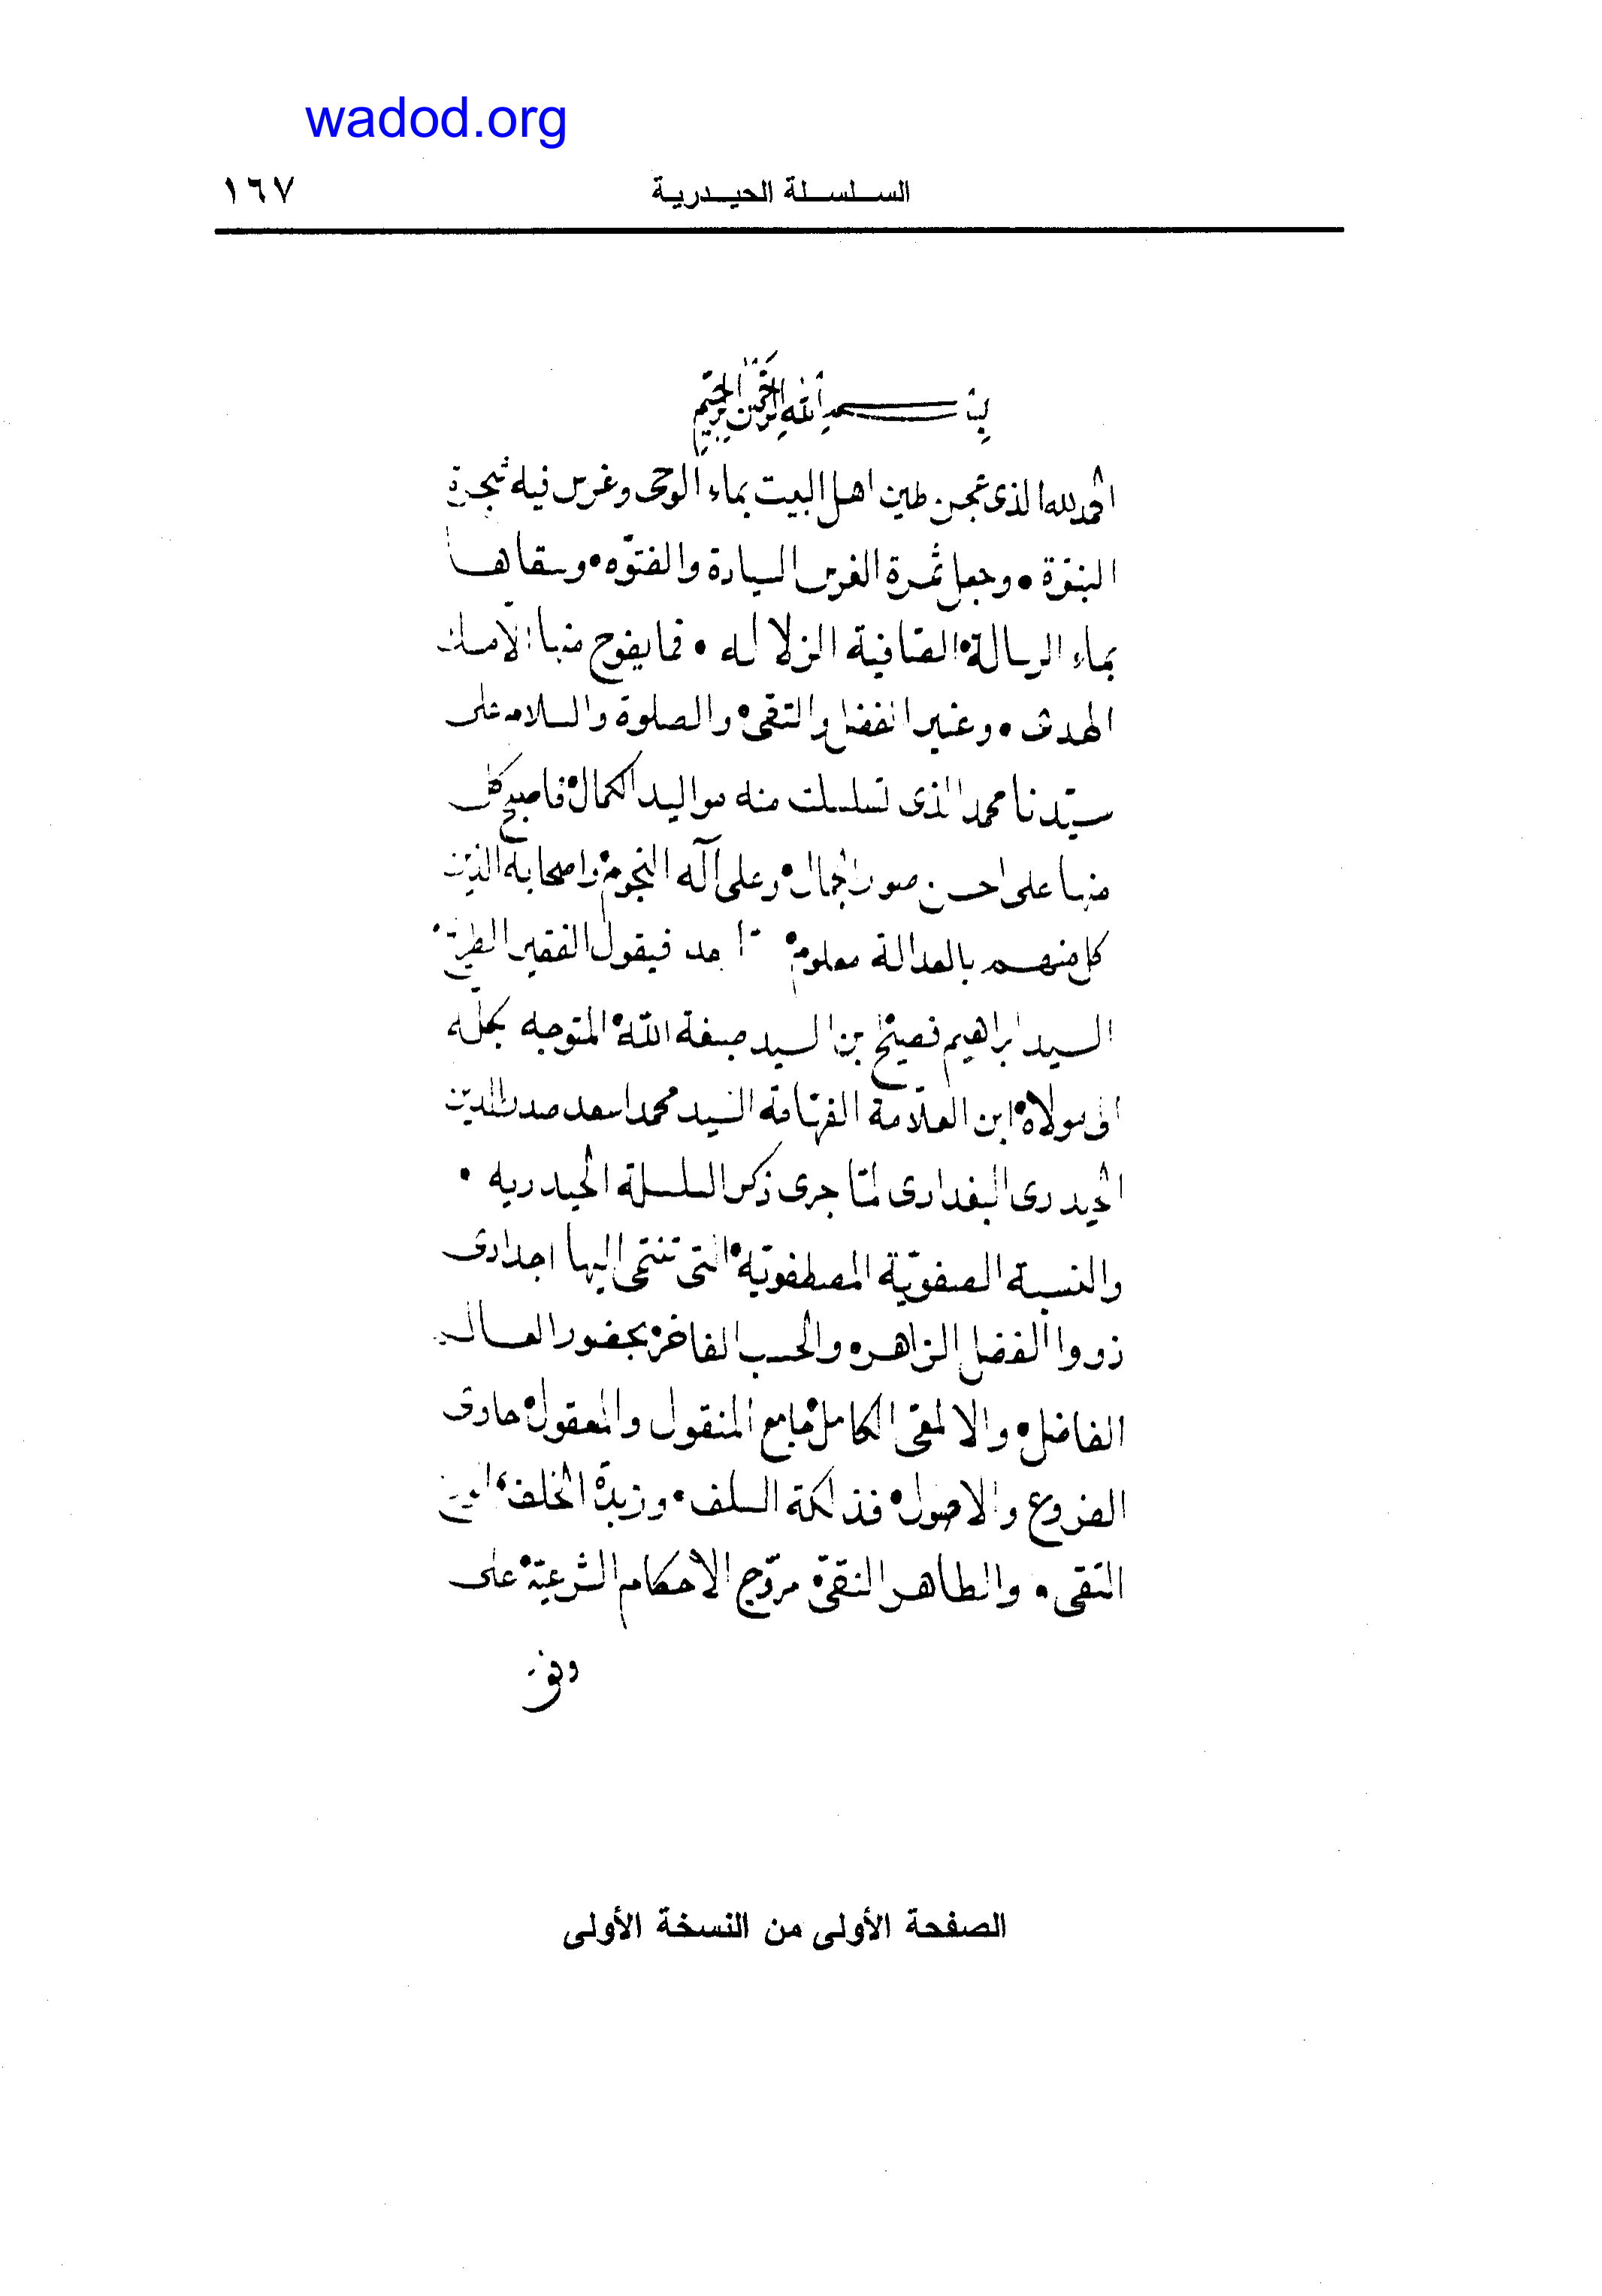 wadod.org
السلسلة الحيدرية ١٦٧
بسم الله الرحمن الرحيم
الحمد لله الذى عجن طين اهل البيت بماء الوحى وغرس فيه شجرة
النبوّة • وجعل ثمرة الغرس السيادة والفتوّه • وسقاها
بماء الرسالة • الصافية الزلاله • فما يفوح منها الّا مسك
الهدى • وعنبر الفضل والتقى • والصلوة والسلام على
سيّدنا محمد الذى تسلسلت منه مواليد الكمال • فاصبح كل
منها على احسن صور الجمال • وعلى آله النجوم • واصحابه الذين
كل منهم بالعدالة معلوم • اما بعد فيقول الفقير
السيد ابراهيم فصيح بن السيد صبغة الله • المتوجه بكلّه
الى مولاه • ابن العلّامة الفهّامة السيد محمد اسعد صدر الدين
الحيدرى البغدادى لمّا جرى ذكر السلسلة الحيدريه •
والنسبة الصفويّة المصطفويّه • التى تنتمى اليها اجدادى
ذووا الفضل الزاهر • والحسب الفاخر • بحضور العالم
الفاضل • والالمعى الكامل • جامع المنقول والمعقول • حاوى
الفروع والاصول • فذلكة السلف • وزبدة الخلف •
التقى • والطاهر النقى • مروّج الاحكام الشرعيّة • على
وفق
الصفحة الأولى من النسخة الأولى